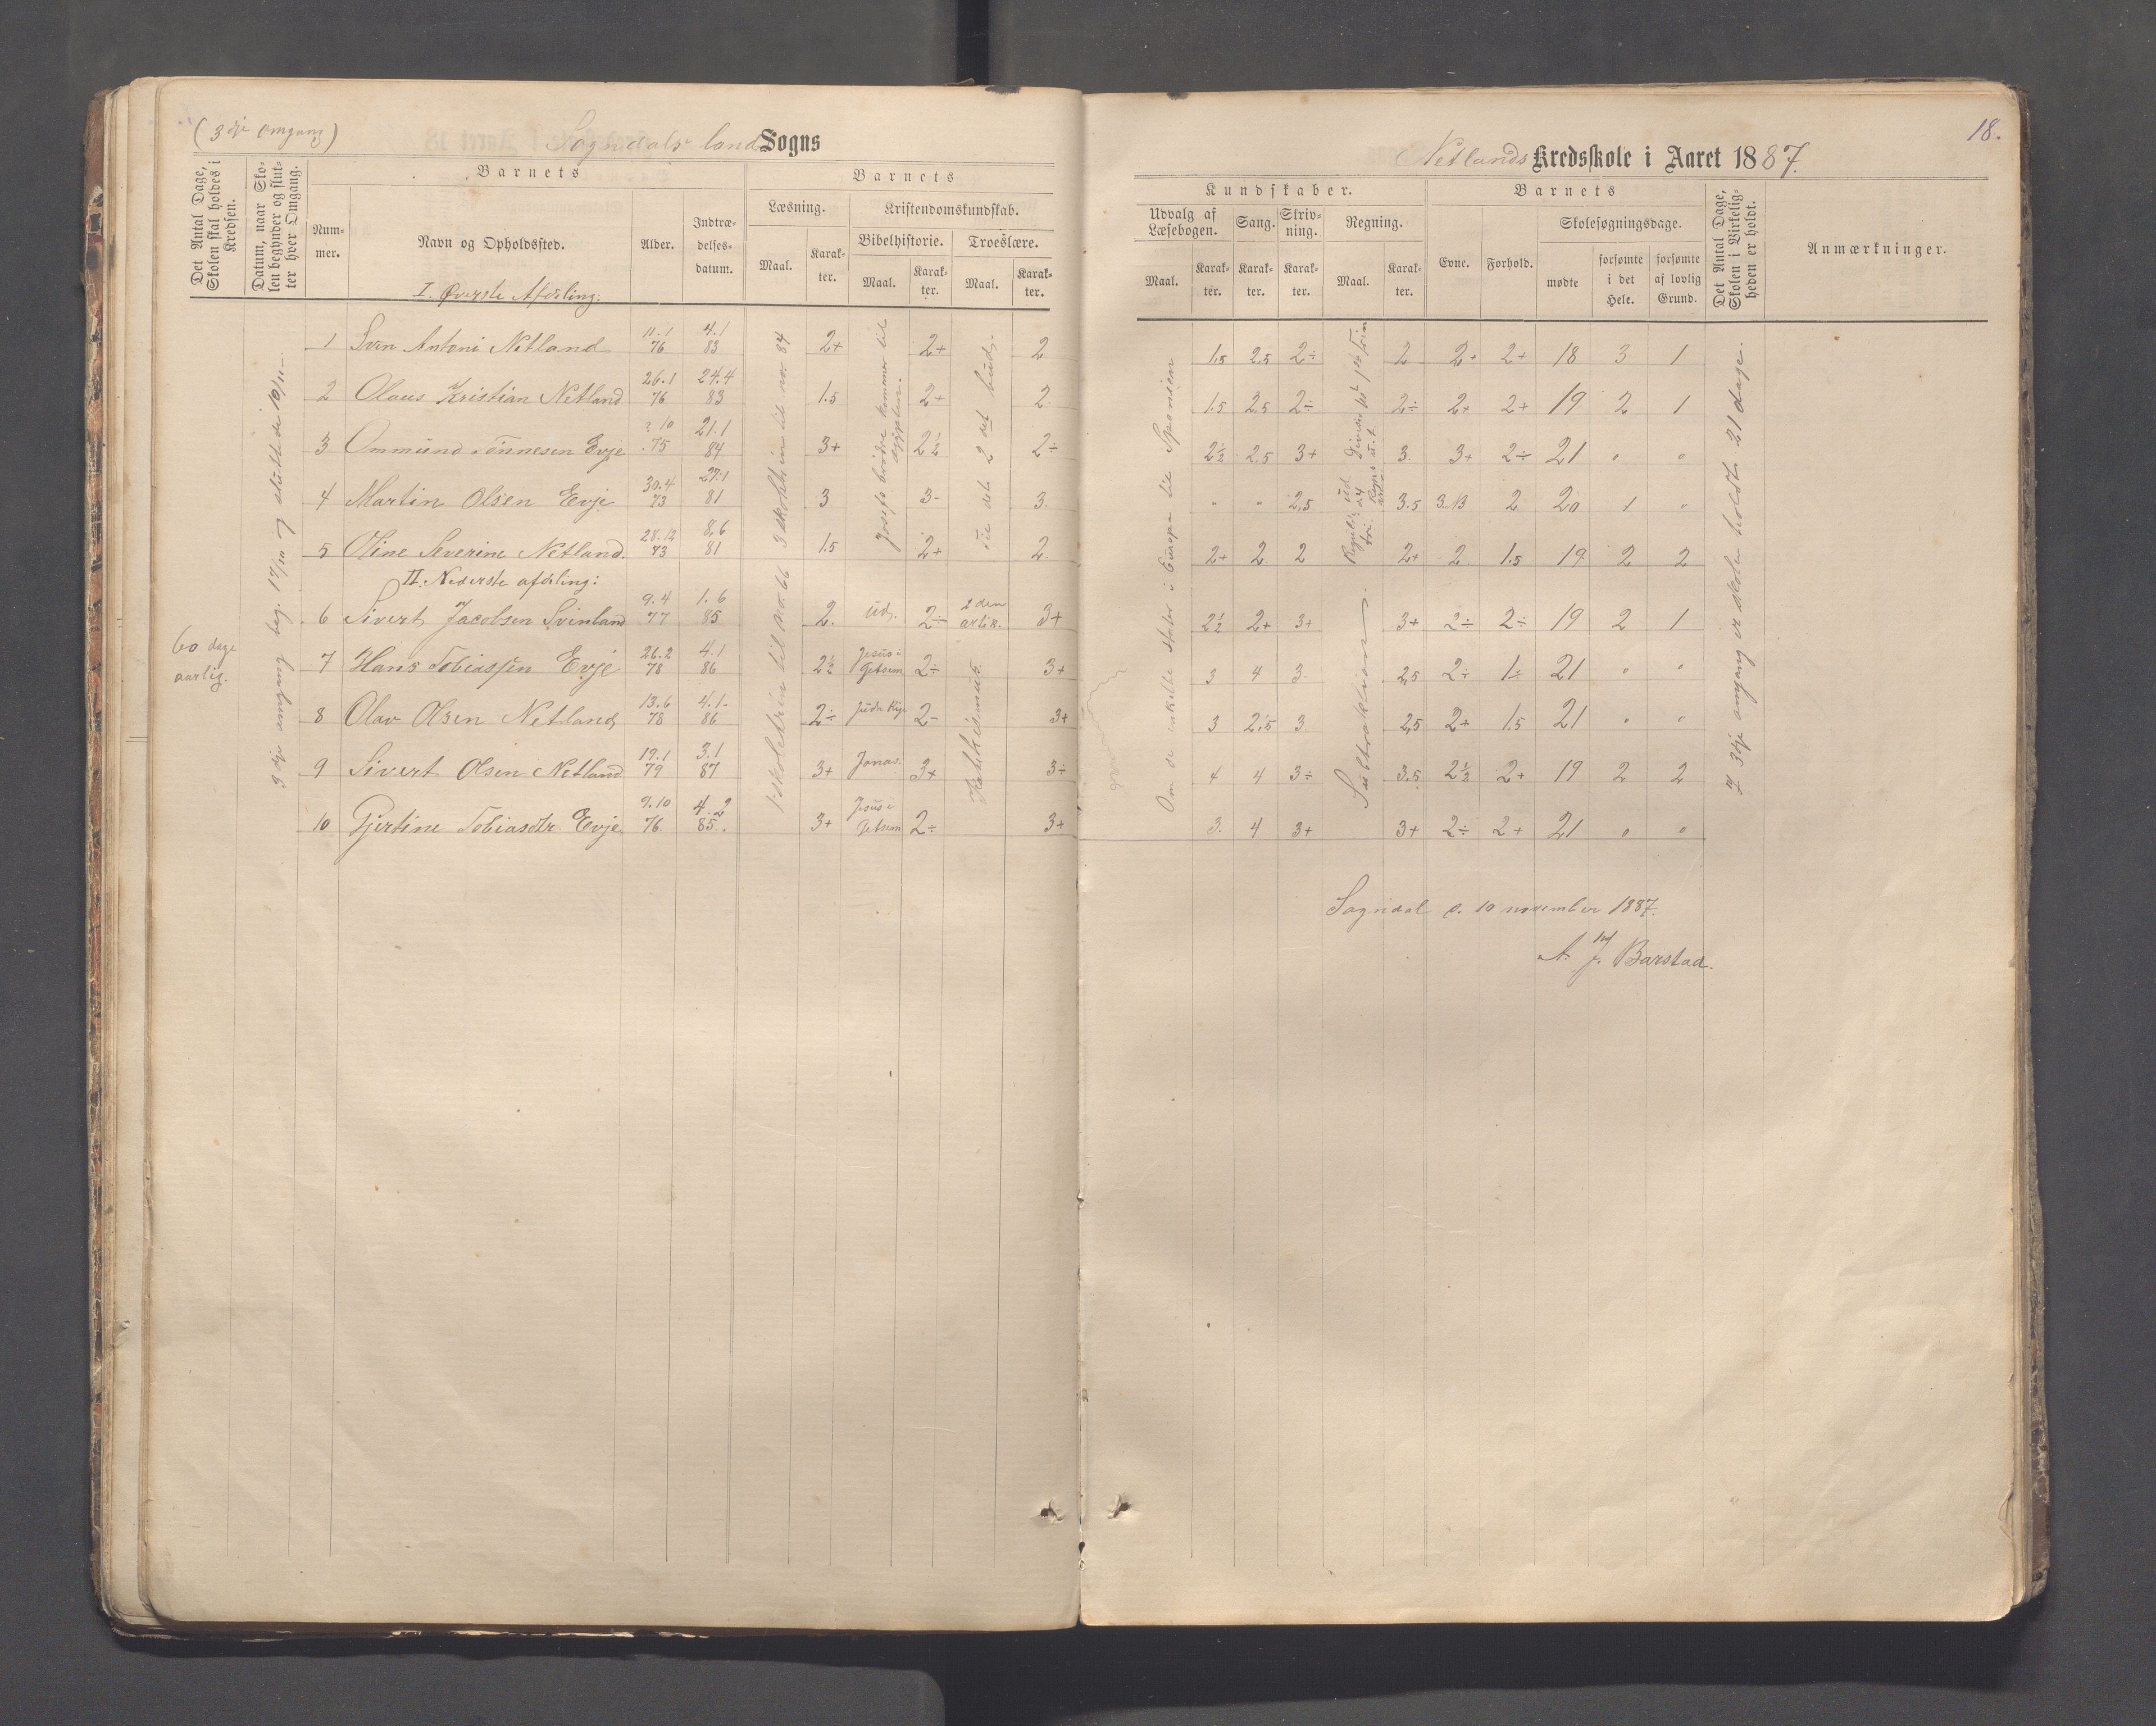 (3dje omgang)
Sogndals land Sogns
Det Antal Dage, Skolen skal holdes i Kredsen.
Datum, naar Skolen begynder og slutter hver Omgang.
Barnets
Nummer.
Navn og Opholdssted.
Alder.
Indtrædelsesdatum.
Barnets
Læsning.
Kristendomskundskab.
Bibelhistorie.
Troeslære.
Maal.
Karakter.
Maal.
Karakter.
Maal.
Karakter.
I. Øverste Afdeling:
1 Sven Antoni Netland 11.1 76 4.1 83 2+ 2+ 2
2 Olaus Kristian Netland 26.1 76 24.4 83 1.5 2+ 2.
3 Ommund Tønnesen Evje 10 75 21.1 84 3+ 2½ 2÷
4 Martin Olsen Evje 30.4 73 27.1 81 3 3- 3.
5 Oline Severine Netland. 28.12 73 8.6 81 1.5 2+ 2.
II. Nederste afdeling:
6 Sivert Jacobsen Svinland 9.4 77 1.6 85 2. ud. 2÷ 2den artik. 3+
7 Hans Tobiassen Evje 26.2 78 4.1 86 2½ Jesus i Getsem 2÷ 3+
8 Olav Olsen Netland 13.6 78 4.1 86 2÷ Juda Kig. 2- 3+
9 Sivert Olsen Netland 19.1 79 3.1 87 3+ Jonas. 3+ 3÷
10 Gjertine Tobiasdtr Evje. 9.10 76. 4.2 85. 3+ Jesus i Getsem 2÷ 3+
60 dage aarlig.
3dje omgang beg. 17/10 og sluttede 10/11
til no. 84
til no. 66
Josefs brødre kommer til Ægypten.
det 2det bud.
18.
Netlands Kredsskole i Aaret 1887.
Kundskaber.
Udvalg af Læsebogen.
Sang.
Skrivning.
Regning.
Maal.
Karakter.
Karakter.
Karakter.
Maal.
Karakter.
Barnets
Evne.
Forhold.
Skolesøgningsdage.
mødte
forsømte i det Hele.
forsømte af lovlig Grund.
Det Antal Dage, Skolen i Virkeligheden er holdt.
Anmærkninger.
1.5 2.5 2÷ 2 2+ 2+ 18 3 1
1.5 2.5 2÷ 2÷ 2+ 2+ 19 2 1
2½ 2.5 3+ 3. 3+ 2÷ 21 " "
" " 2,5 3.5 3.NB 2 20 1 "
2+ 2. 2 2+ 2. 1.5 19 2 2
2½ 2+ 3+ 3+ 2÷ 2÷ 19 2 1
3 4 3. 2,5 2÷ 1÷ 21 " "
3 2,5 3. 2,5 2+ 1.5 21 " "
4 4 3÷ 3.5 2½ 2+ 19 2 2
3. 4 3+ 3+ 2÷ 2+ 21 " "
Om de enkelte stater i Europa til Spanien
Subtraktion.
I 3dje omgang er skole holdt 21 dage.
Sogndal d. 10 november 1887.
A. J. Barstad.